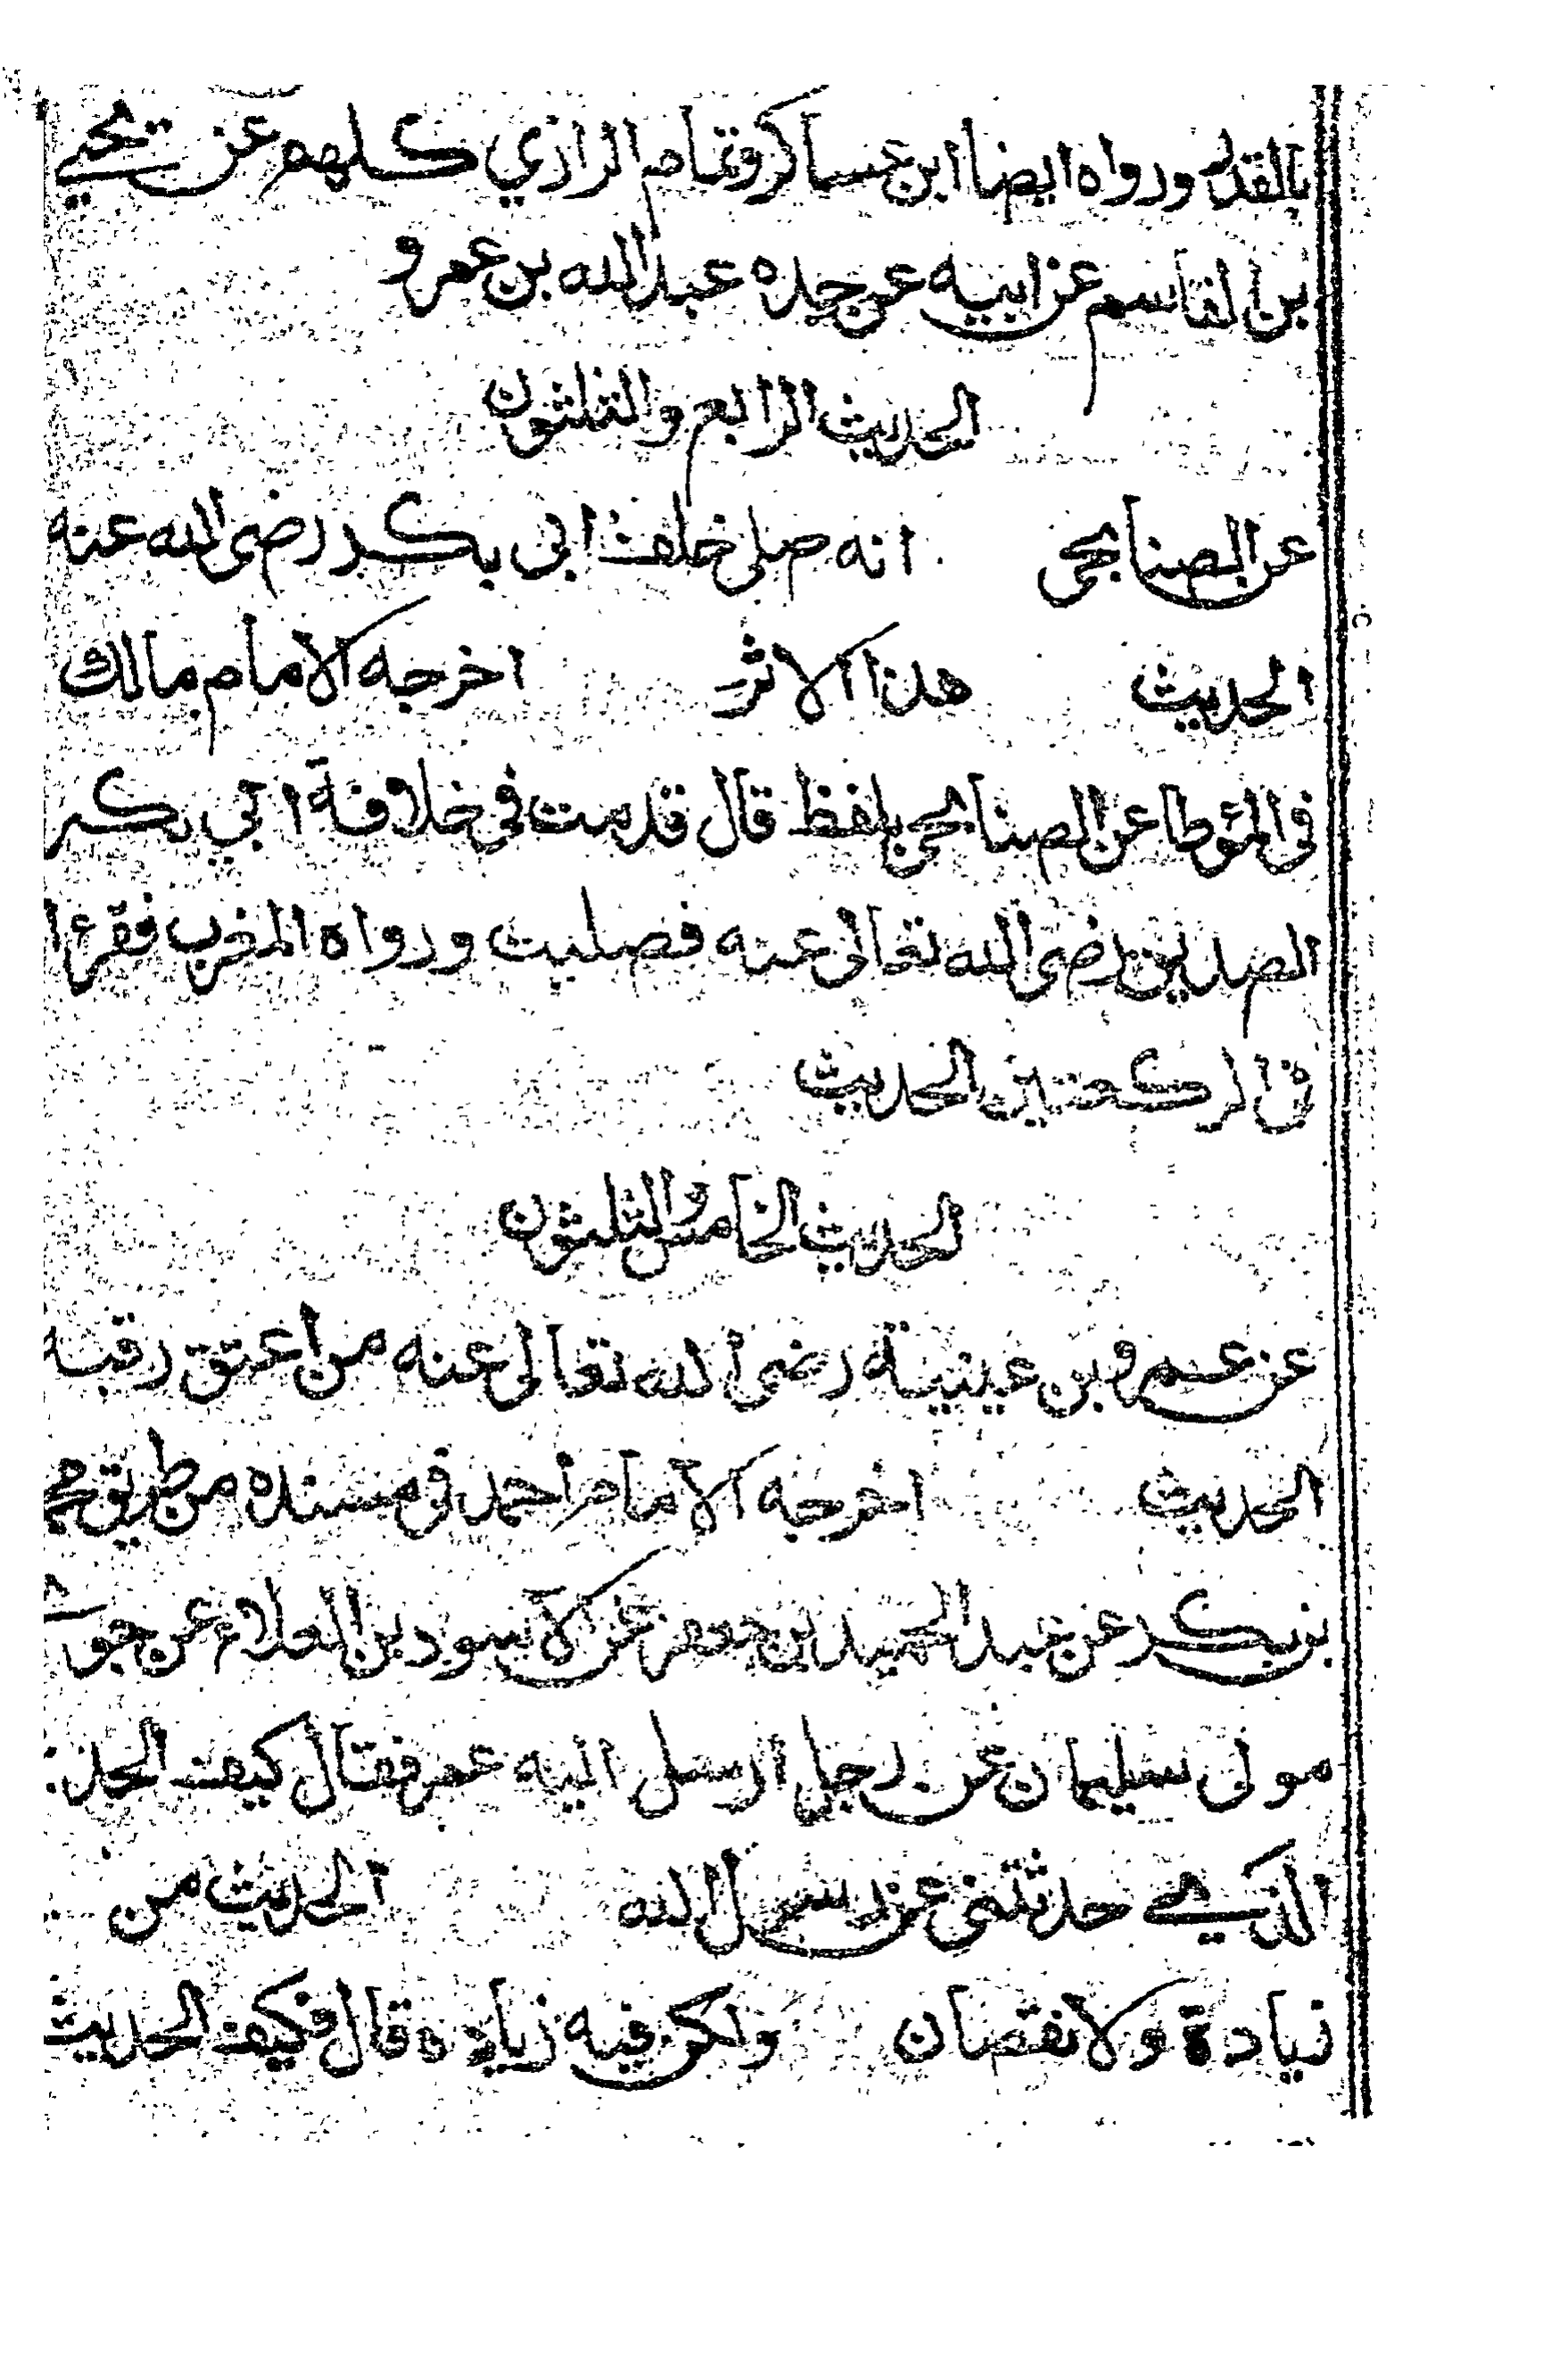 بالقدر ورواه ايضا ابن عساكر وتمام الرازي كلهم عن يحيي
بن القاسم عن ابيه عن جده عبد الله بن عمرو
الحديث الرابع والثلثون
عن الصنابحى انه صلى خلف ابى بكر رضى الله عنه
الحديث هذا الاثر اخرجه الامام مالك
فى المؤطا عن الصنابحى بلفظ قال قدمت فى خلافة ابي بكر
الصديق رضى الله تعالى عنه فصليت ورواه المغرب فقرء ا
فى الركعتين الحديث
الحديث الخامس والثلثون
عن عمرو بن عينية رضى الله تعالى عنه من اعتق رقبة
الحديث اخرجه الامام احمد فى مسنده من طريق مح
بن بكر عن عبد الحميد بن جعفر عن الاسود بن العلاء عن حوى
مولى سليمان عن رجل ارسل اليه عمر فقال كيف الحد
الذي حدثتنى عن رسول الله الحديث من
زيادة ولا نقصان ولكن فيه زيادة قال فكيف الحديث